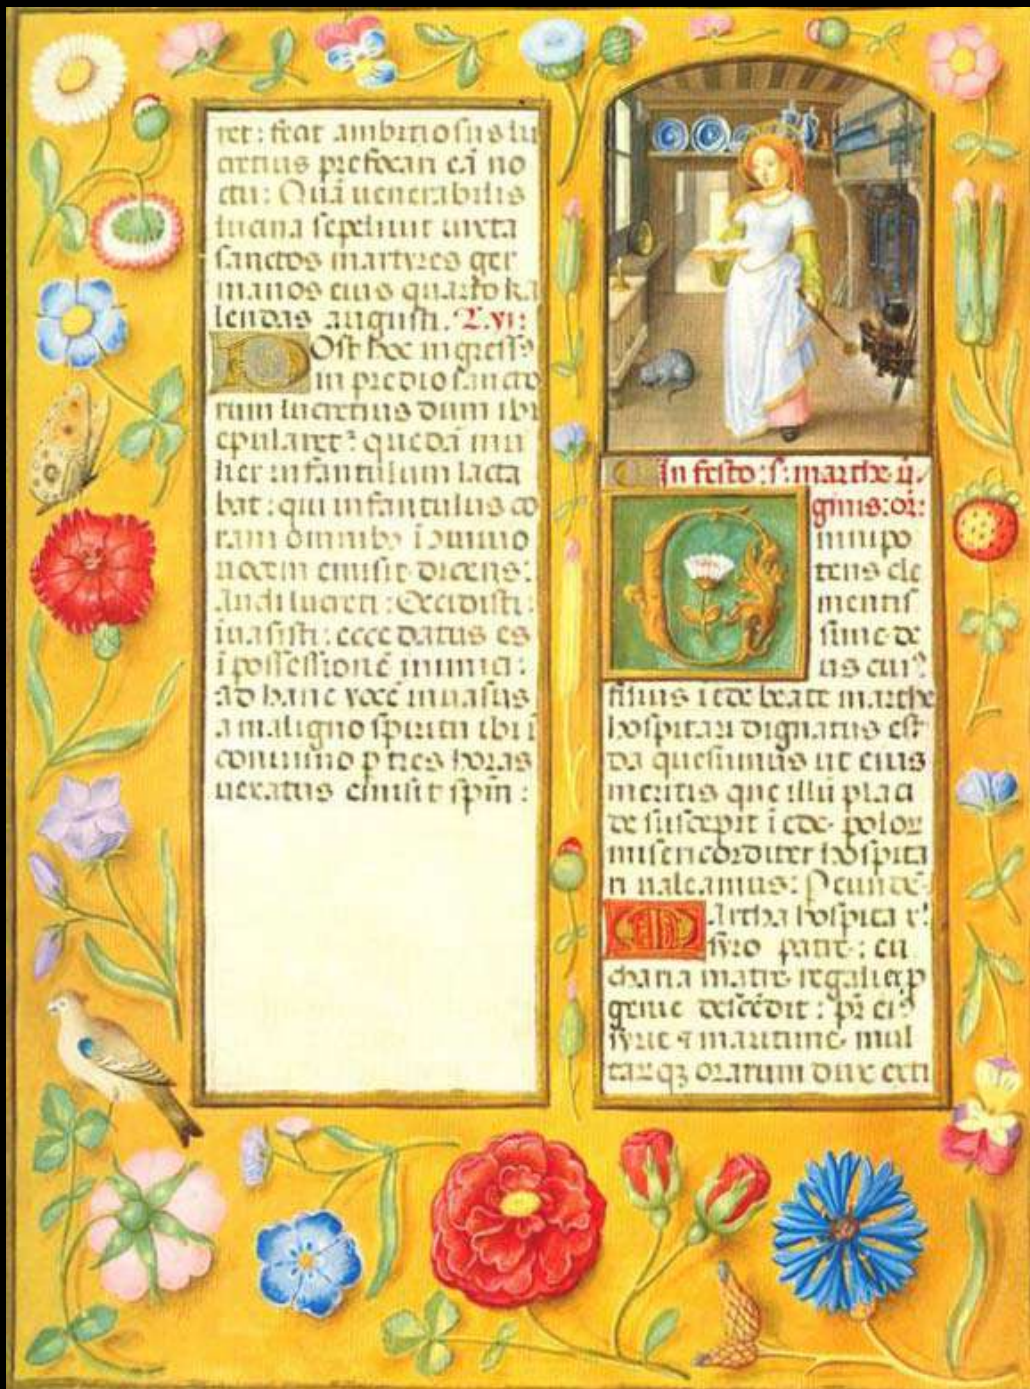 ret: fecit ambitiosus lu
cretius prefocari eā no
ctu: Quā uenerabilis
lucina sepeliuit iuxta
sanctos martyres ger
manos eius quarto ka
lendas augusti. L. vi:
Ost hoc ingressꝰ
in predio sancto
rum lucretius dum ibi
epularetꝛ quedā mu
lier infantulum lacta
bat: qui infantulus co
ram omnibꝫ ī
uocem emisit dicens:
Audi lucreti: Occidisti:
inuasisti: ecce datus es
ī possessionē inimici:
ad hanc vocē inuasus
a maligno spiritu ibi ī
conuiuio p tres horas
uexatus emisit spm̄:
In festo: s: marthe ui
ginis: or:
mnipo
tens cle
mentis
sime de
us cuiꝰ
filius ī ede beate marthe
hospitari dignatus est
da quesumus ut eius
meritis que illū placi
de suscepit ī ede polor
misericorditer hospita
ri ualeamus: P eundē
Martha hospita x̄
syro patre: eu
charia matre regali ex p
genie descēdit: pr̄ eiꝰ
syrie ⁊ maritime mul
tarqꝫ orarum dux exti